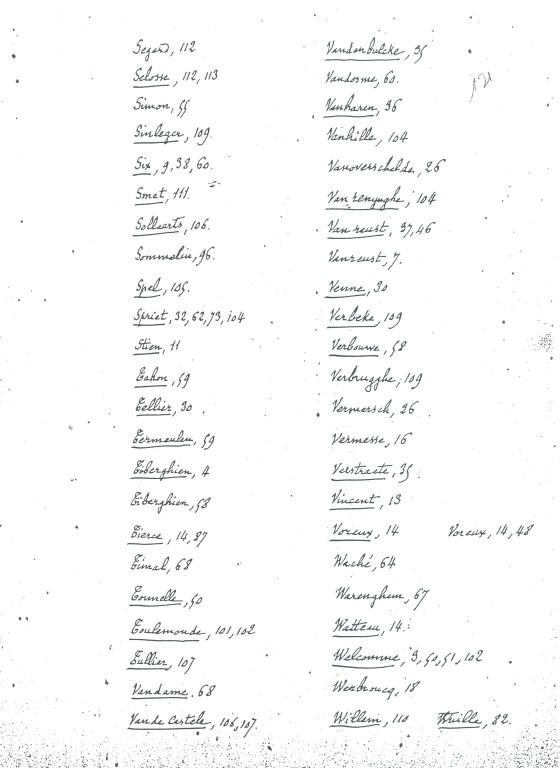 Segard, 112
Selosse, 112, 113
Simon, 55
Sinleger, 109.
Six, 9, 38, 60.
Smet, 111.
Sollaerts, 106.
Sommelin, 96.
Spel, 105.
Spriet, 32, 62, 73, 104
Stien, 11
Tahon, 59
Tellier, 30.
Termeulen, 59
Tiberghien, 4
Tiberghien, 58
Tierce, 14, 87
Timal, 68
Tournelle, 50
Toulemonde, 101, 102
Tullier, 107
Vandame, 68
Van de Castele, 106, 107.
Vandenbulcke, 35
Vandosme, 60.
Vanharen, 36
Vanhille, 104
Vanoverschelde, 26
Van renynghe, 104
Van reust, 37, 46
Vanreust, 7.
Venne, 30
Verbeke, 109
Verbouwe, 58
Verbrugghe, 109
Vermersch, 26
Vermesse, 16
Verstraete, 35.
Vincent, 13
Voreux, 14 Voreux, 14, 48
Waché, 64
Warenghem, 67
Watteau, 14.
Welcomme, 3, 50, 51, 102
Werbroucq, 18
Willem, 110 Wuille, 82.